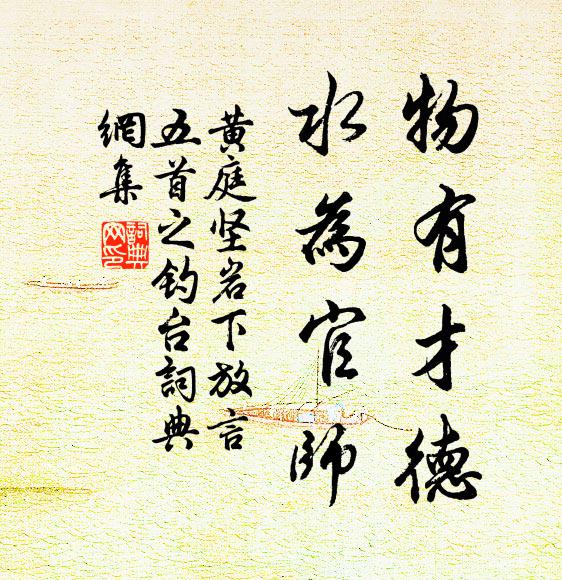 物有才德
水為官師
黄庭坚岩下放言
五首之钓台詞典
網集
詞典
网印